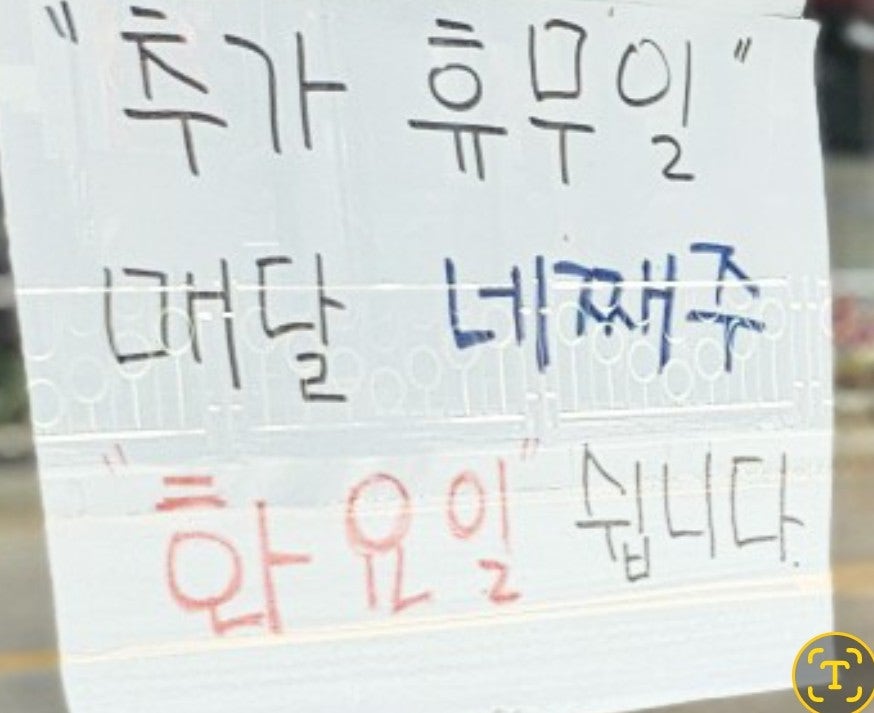 "추가 휴무일"
매달 네째주
"화요일" 쉽니다.